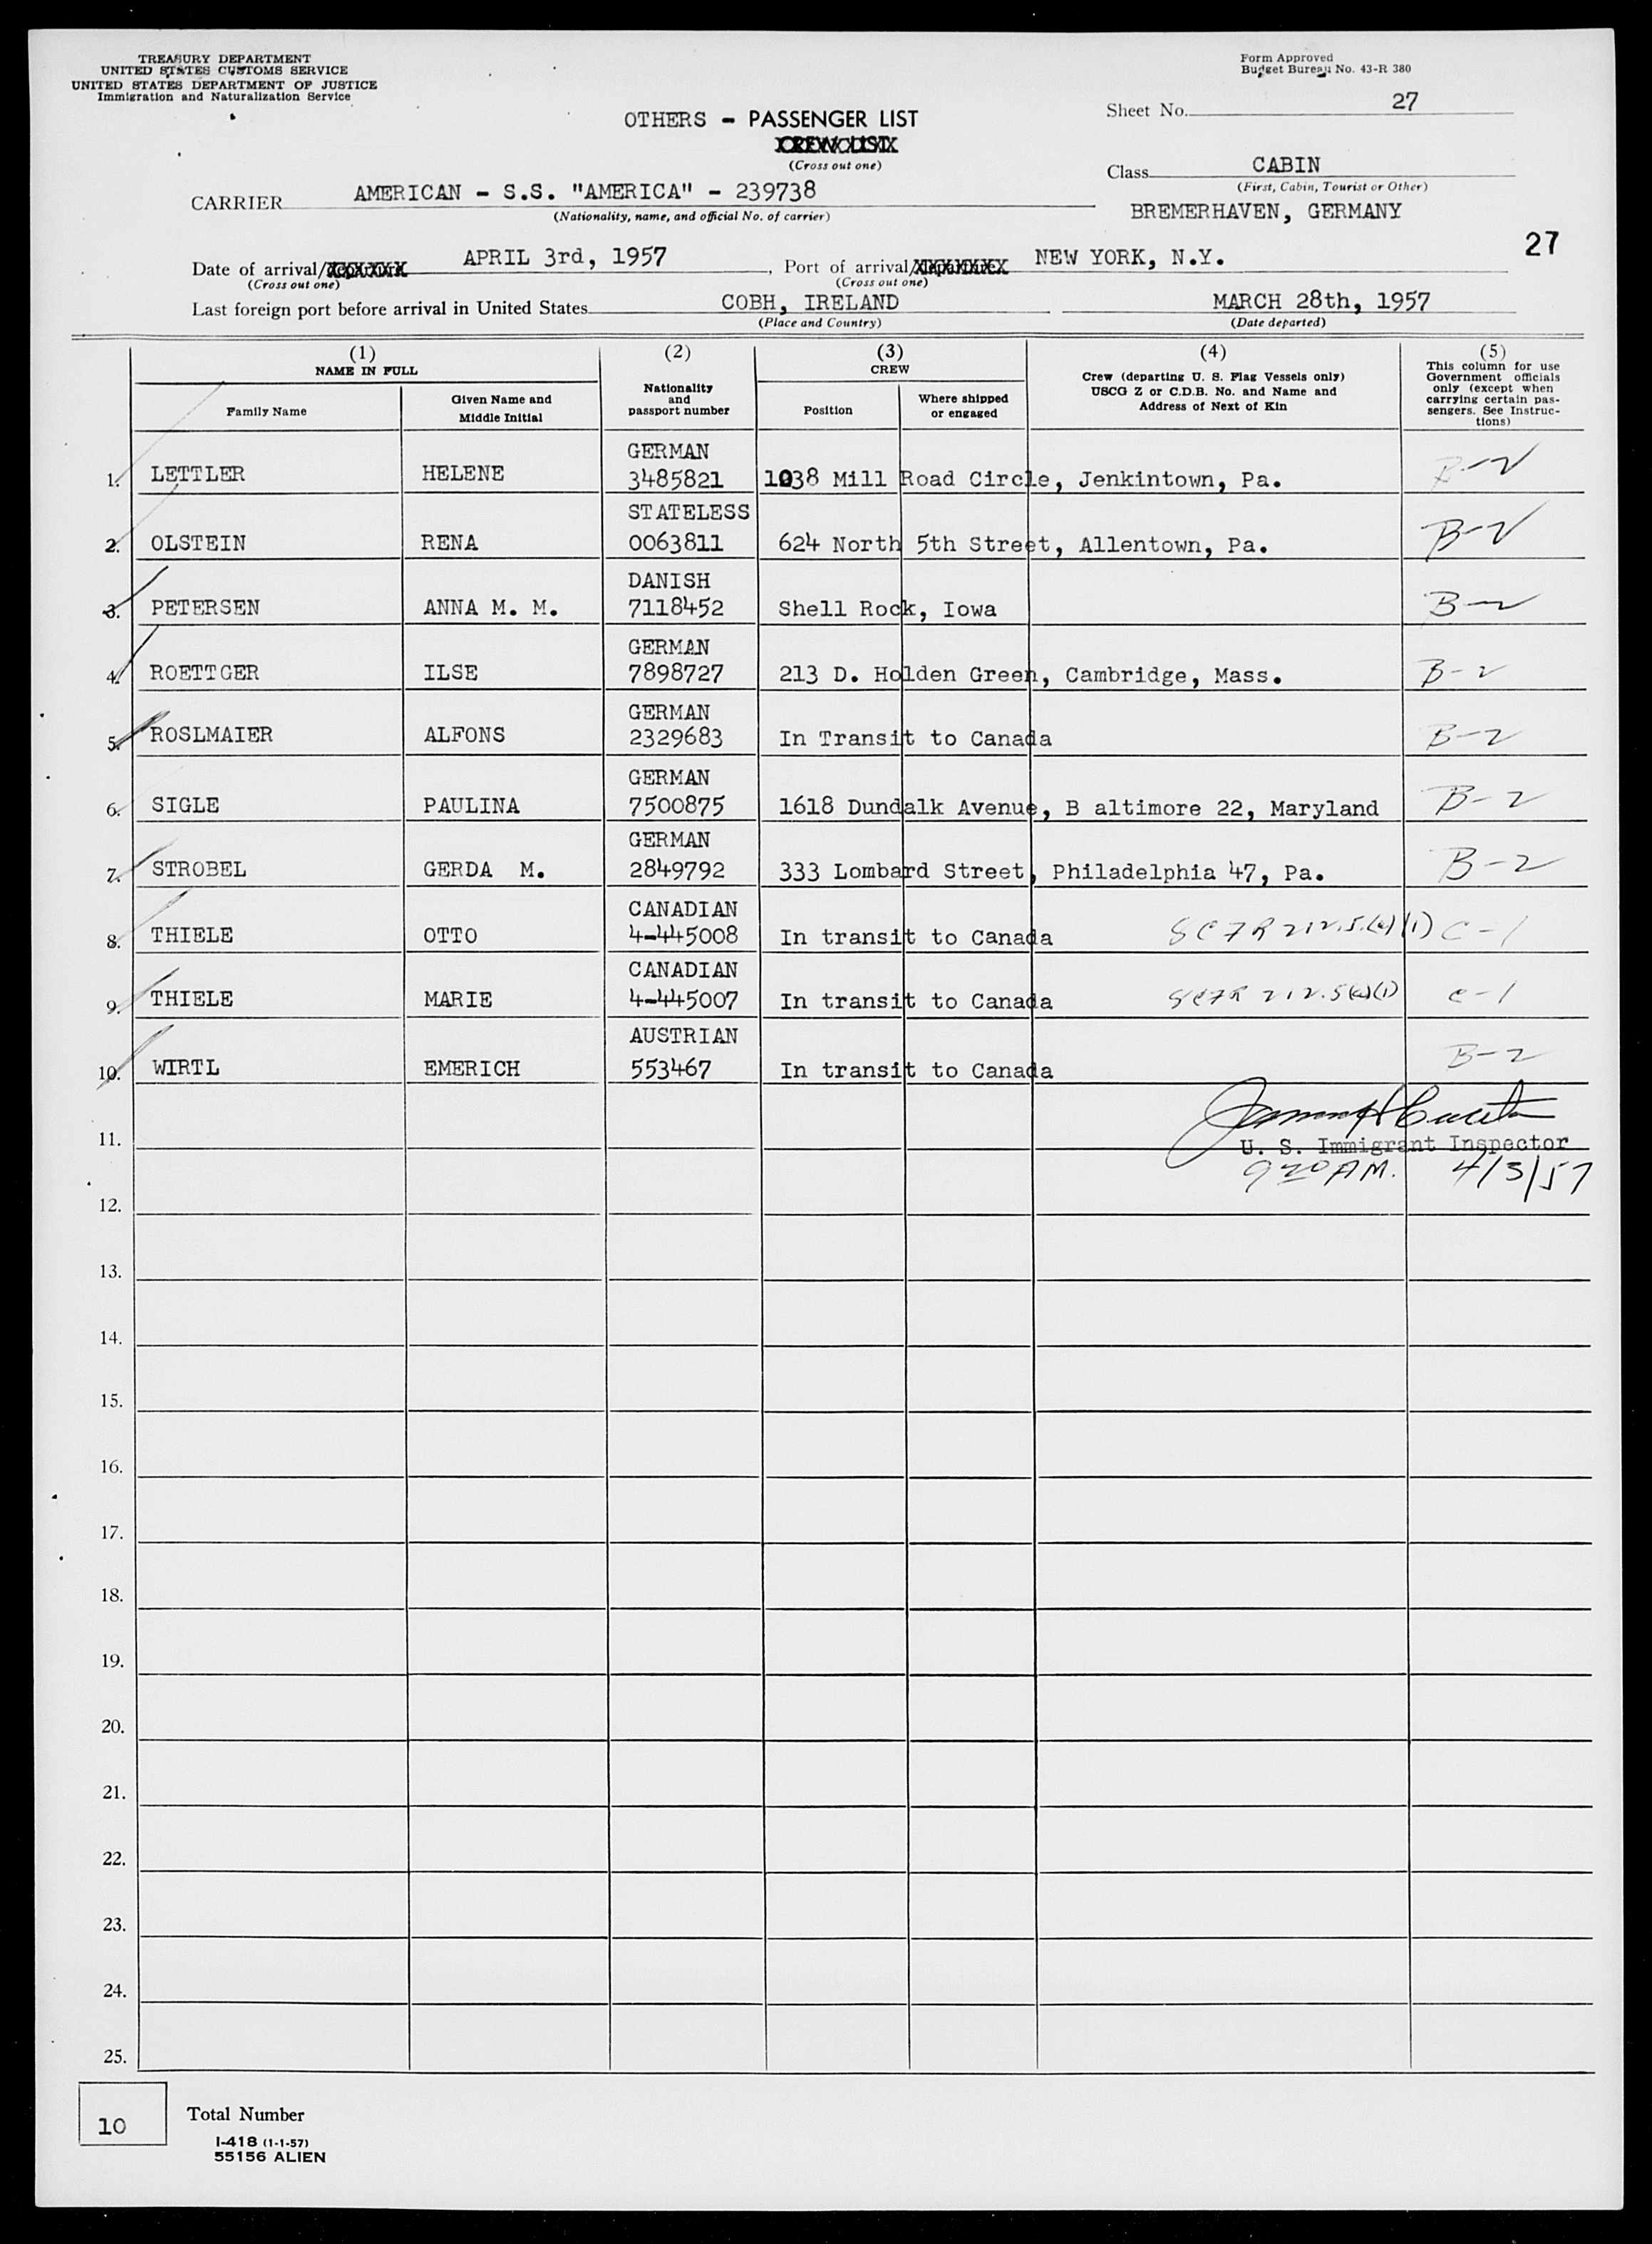 TREASURY DEPARTMENT
UNITED STATES CUSTOMS SERVICE
UNITED STATES DEPARTMENT OF JUSTICE
Immigration and Naturalization Service
Form Approved
Budget Bureau No. 43-R 380
Sheet No. 27
OTHERS - PASSENGER LIST
CREW LIST
(Cross out one)
Class CABIN
(First, Cabin, Tourist or Other)
CARRIER AMERICAN - S.S. "AMERICA" - 239738
(Nationality, name, and official No. of carrier)
BREMERHAVEN, GERMANY
27
Date of arrival/departure APRIL 3rd, 1957, Port of arrival/departure NEW YORK, N.Y.
(Cross out one) (Cross out one)
Last foreign port before arrival in United States COBH, IRELAND MARCH 28th, 1957
(Place and Country) (Date departed)
(1) NAME IN FULL
Family Name
Given Name and Middle Initial
(2) Nationality and passport number
(3) CREW
Position
Where shipped or engaged
(4) Crew (departing U. S. Flag Vessels only) USCG Z or C.D.B. No. and Name and Address of Next of Kin
(5) This column for use Government officials only (except when carrying certain passengers. See Instructions)
GERMAN
1. LETTLER HELENE 3485821 1038 Mill Road Circle, Jenkintown, Pa. B-2
STATELESS
2. OLSTEIN RENA 0063811 624 North 5th Street, Allentown, Pa. B-2
DANISH
3. PETERSEN ANNA M. M. 7118452 Shell Rock, Iowa B-2
GERMAN
4. ROETTGER ILSE 7898727 213 D. Holden Green, Cambridge, Mass. B-2
GERMAN
5. ROSLMAIER ALFONS 2329683 In Transit to Canada B-2
GERMAN
6. SIGLE PAULINA 7500875 1618 Dundalk Avenue, B altimore 22, Maryland B-2
GERMAN
7. STROBEL GERDA M. 2849792 333 Lombard Street, Philadelphia 47, Pa. B-2
CANADIAN
8. THIELE OTTO 4-445008 In transit to Canada 8 CFR 212.5(a)(1) C-1
CANADIAN
9. THIELE MARIE 4-445007 In transit to Canada 8 CFR 212.5(a)(1) C-1
AUSTRIAN
10. WIRTL EMERICH 553467 In transit to Canada B-2
11. U. S. Immigrant Inspector
9 20 AM. 4/3/57
12.
13.
14.
15.
16.
17.
18.
19.
20.
21.
22.
23.
24.
25.
10 Total Number
I-418 (1-1-57)
55156 ALIEN